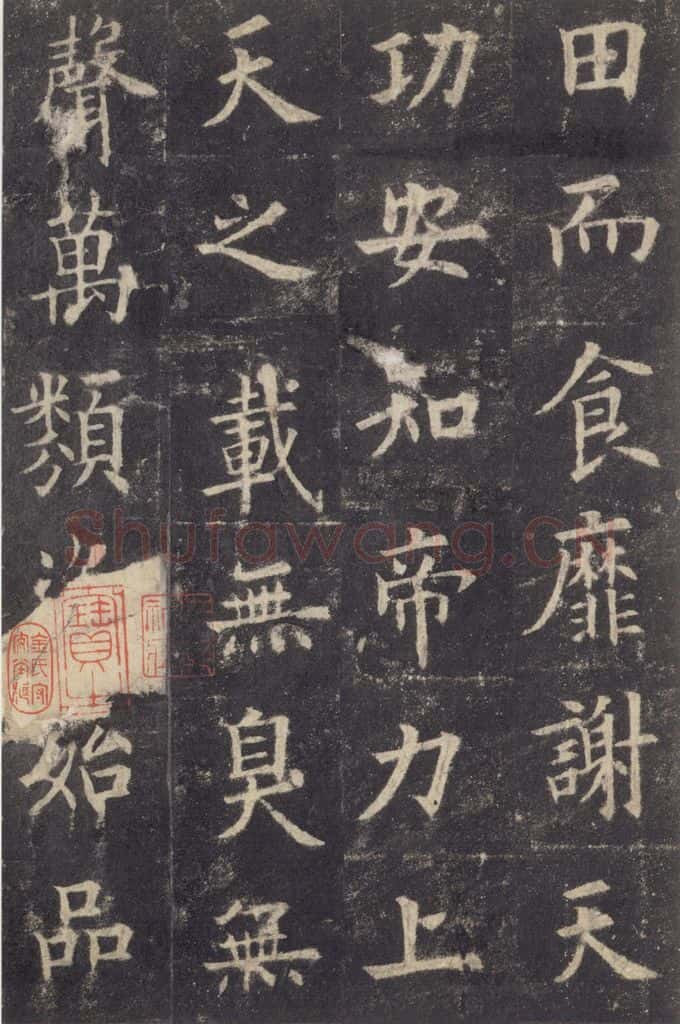 田而食靡謝天
功安知帝力上
天之載無臭無
聲萬類始品
Shufawang.CN